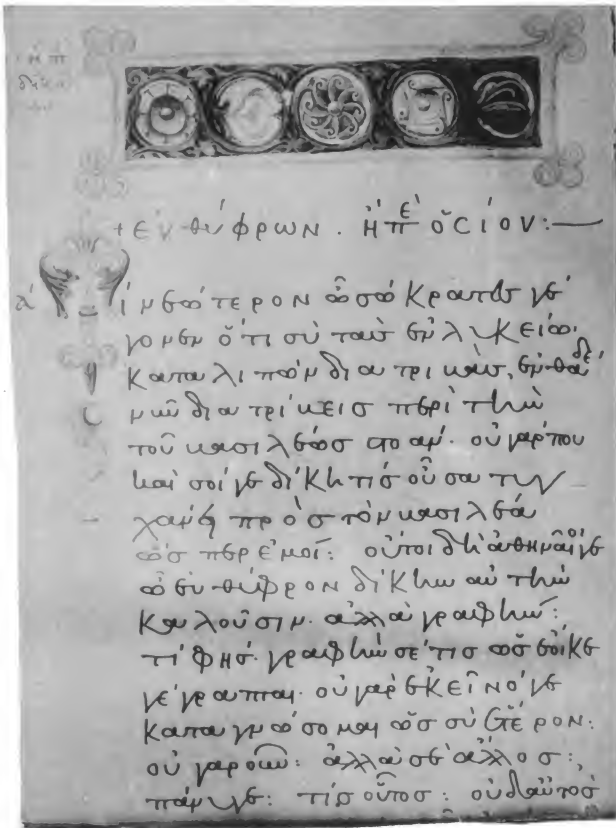 + εὐθύφρων. ἢ πε ὁσίου:—
τί νεώτερον ὦ σώκρατες γέ
γονεν ὅτι σὺ τὰς ἐν λυκείω
καταλιπὼν διατριβὰς, ἐνθάδε
νῦν διατρίβεις περὶ τὴν
τοῦ βασιλέως στοάν. οὐ γάρ που
καὶ σοί γε δίκη τίς οὖσα τυγ
χάνει πρὸς τὸν βασιλέα
ὥσπερ ἐμοί: οὔτοι δὴ ἀθηναῖοί γε
ὦ εὐθύφρον δίκην αὐτὴν
καλοῦσιν. ἀλλὰ γραφήν:
τί φής. γραφὴν σέ τις ὡς ἔοικε
γέγραπται. οὐ γὰρ ἐκεῖνό γε
καταγνώσομαι ὡς σὺ ἕτερον:
οὐ γὰρ οὖν: ἀλλὰ σὲ ἄλλος:
πάνυ γε: τίς οὗτος: οὐδ' αὐτὸς